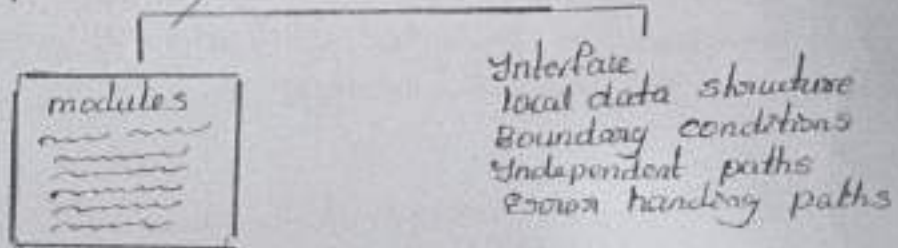 modules
Interface
local data structure
Boundary conditions
Independent paths
Error handing paths